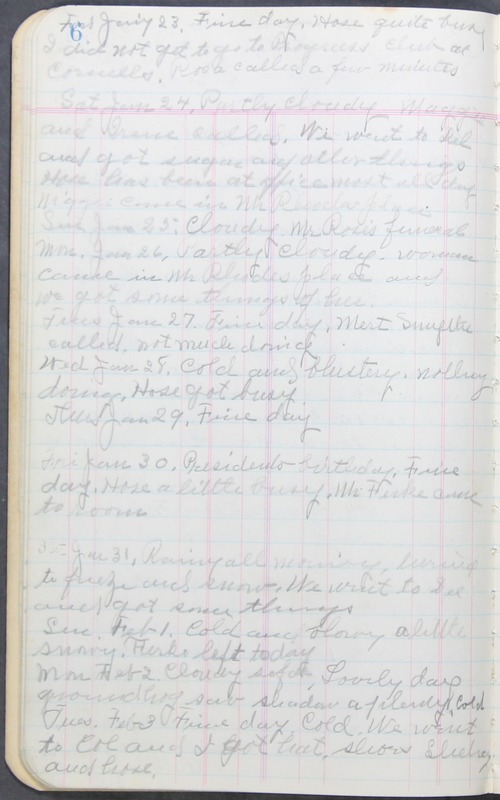 6
Fri Jan 23. Fine day. Hose quite busy
I did not get to go to Progress Club at
Cornells. Rosa called a few minutes
Sat Jan 24, Partly cloudy. Maggie
and Irene called. We went to
and got sugar and other things
Hose has been at office most all day
came in Mr Rhodes place
Sun Jan 25. Cloudy. Mr Ross funeral
Mon. Jan 26, Partly Cloudy. woman
came in Mr Rhodes place and
we got some things of her.
Tues Jan 27. Fine day. Mert
called. not much doing
Wed Jan 28. Cold and blustery. nothing
doing. Hose got busy
Thurs Jan 29. Fine day
Fri Jan 30. Presidents birthday. Fine
day. Hose a little busy. Mr Fiske came
to room
Sat Jan 31, Rainy all morning, turning
to freeze and snow. We went to Dee
and got some things
Sun. Feb 1. Cold and blowy a little
snowy. left today
Mon Feb 2. Cloudy Lovely day
groundhog saw shadow a plenty, Cold
Tues. Feb 3 Fine day Cold. We went
to Col and I got hat, shoes
and hose.